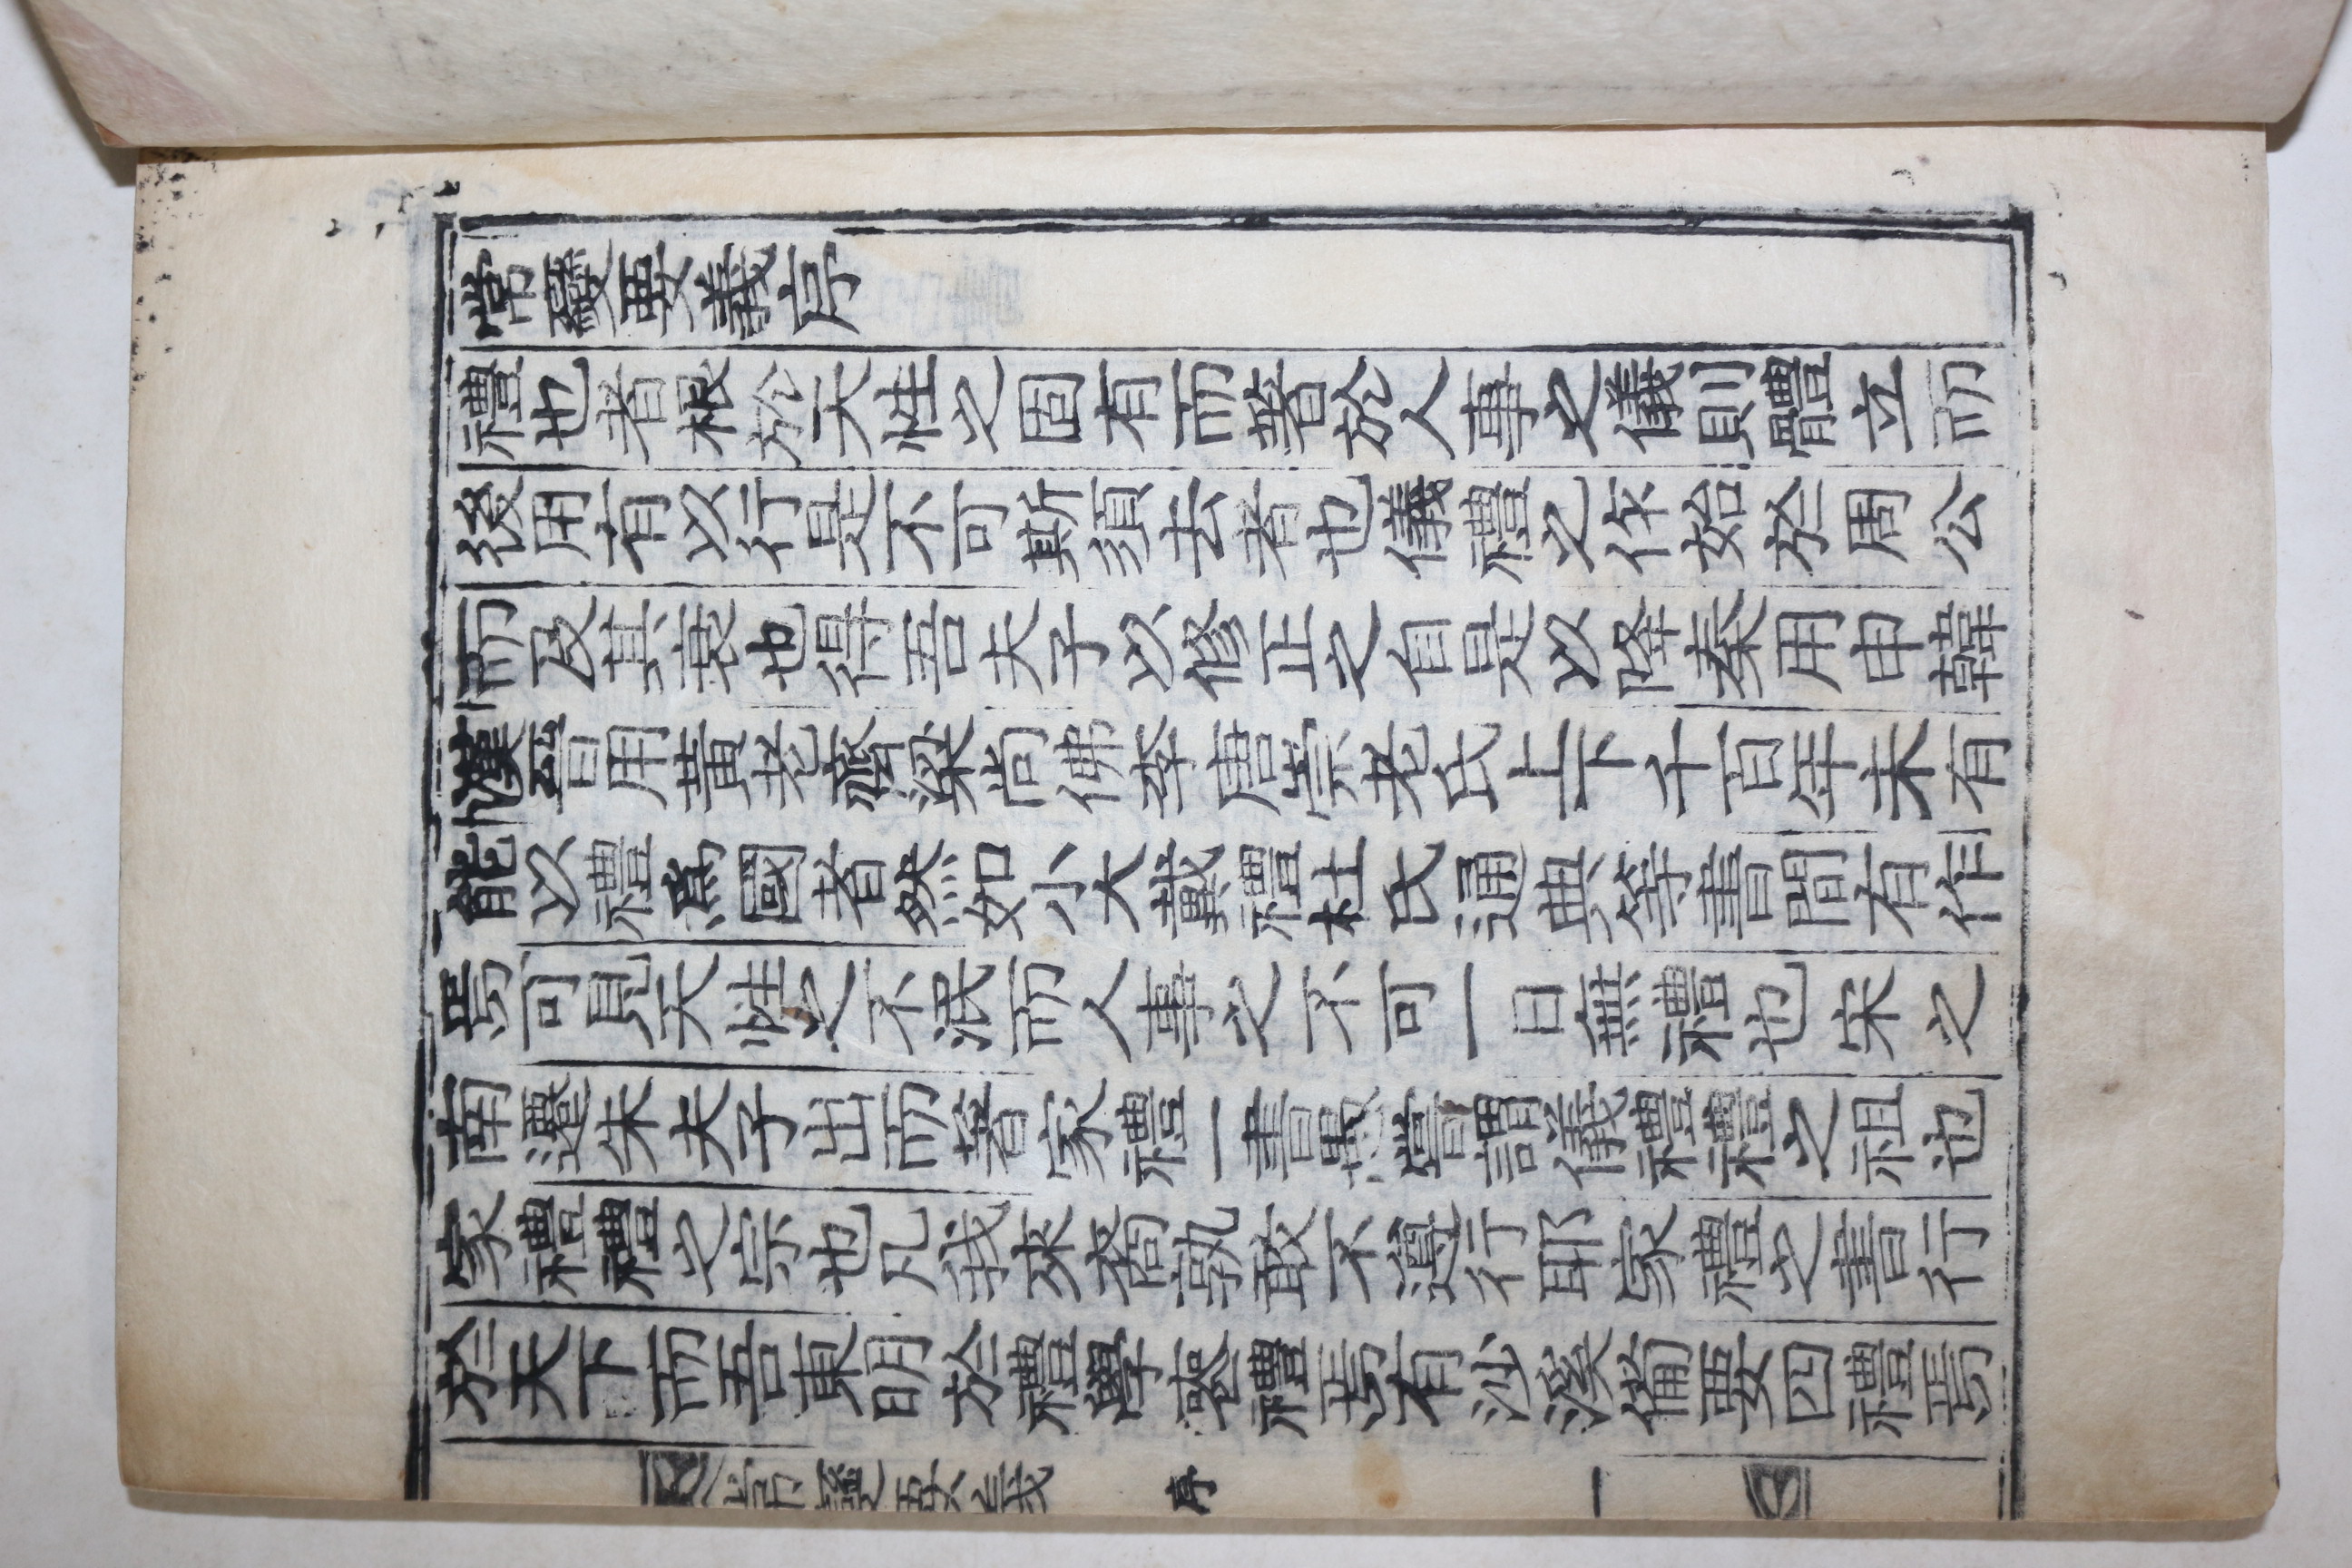 常變要義序
禮也者根於天性之固有而著於人事之儀則體立而
後用有以行是不可斯須去者也儀禮之作始於周公
而及其衰也得吾夫子以修正之自是以降秦用申韓
漢晉用黃老齊梁尚佛李唐崇老氏上下千百年未有
能以禮爲國者然如小大戴禮杜氏通典等書間有作
焉可見天性之不泯而人事之不可一日無禮也宋之
南遷朱夫子出而著家禮一書愚嘗謂儀禮禮之祖也
家禮禮之宗也凡我來裔孰敢不遵行耶家禮之書行
於天下而吾東明於禮學喪禮焉有沙溪備要四禮焉
常變要義 序 一